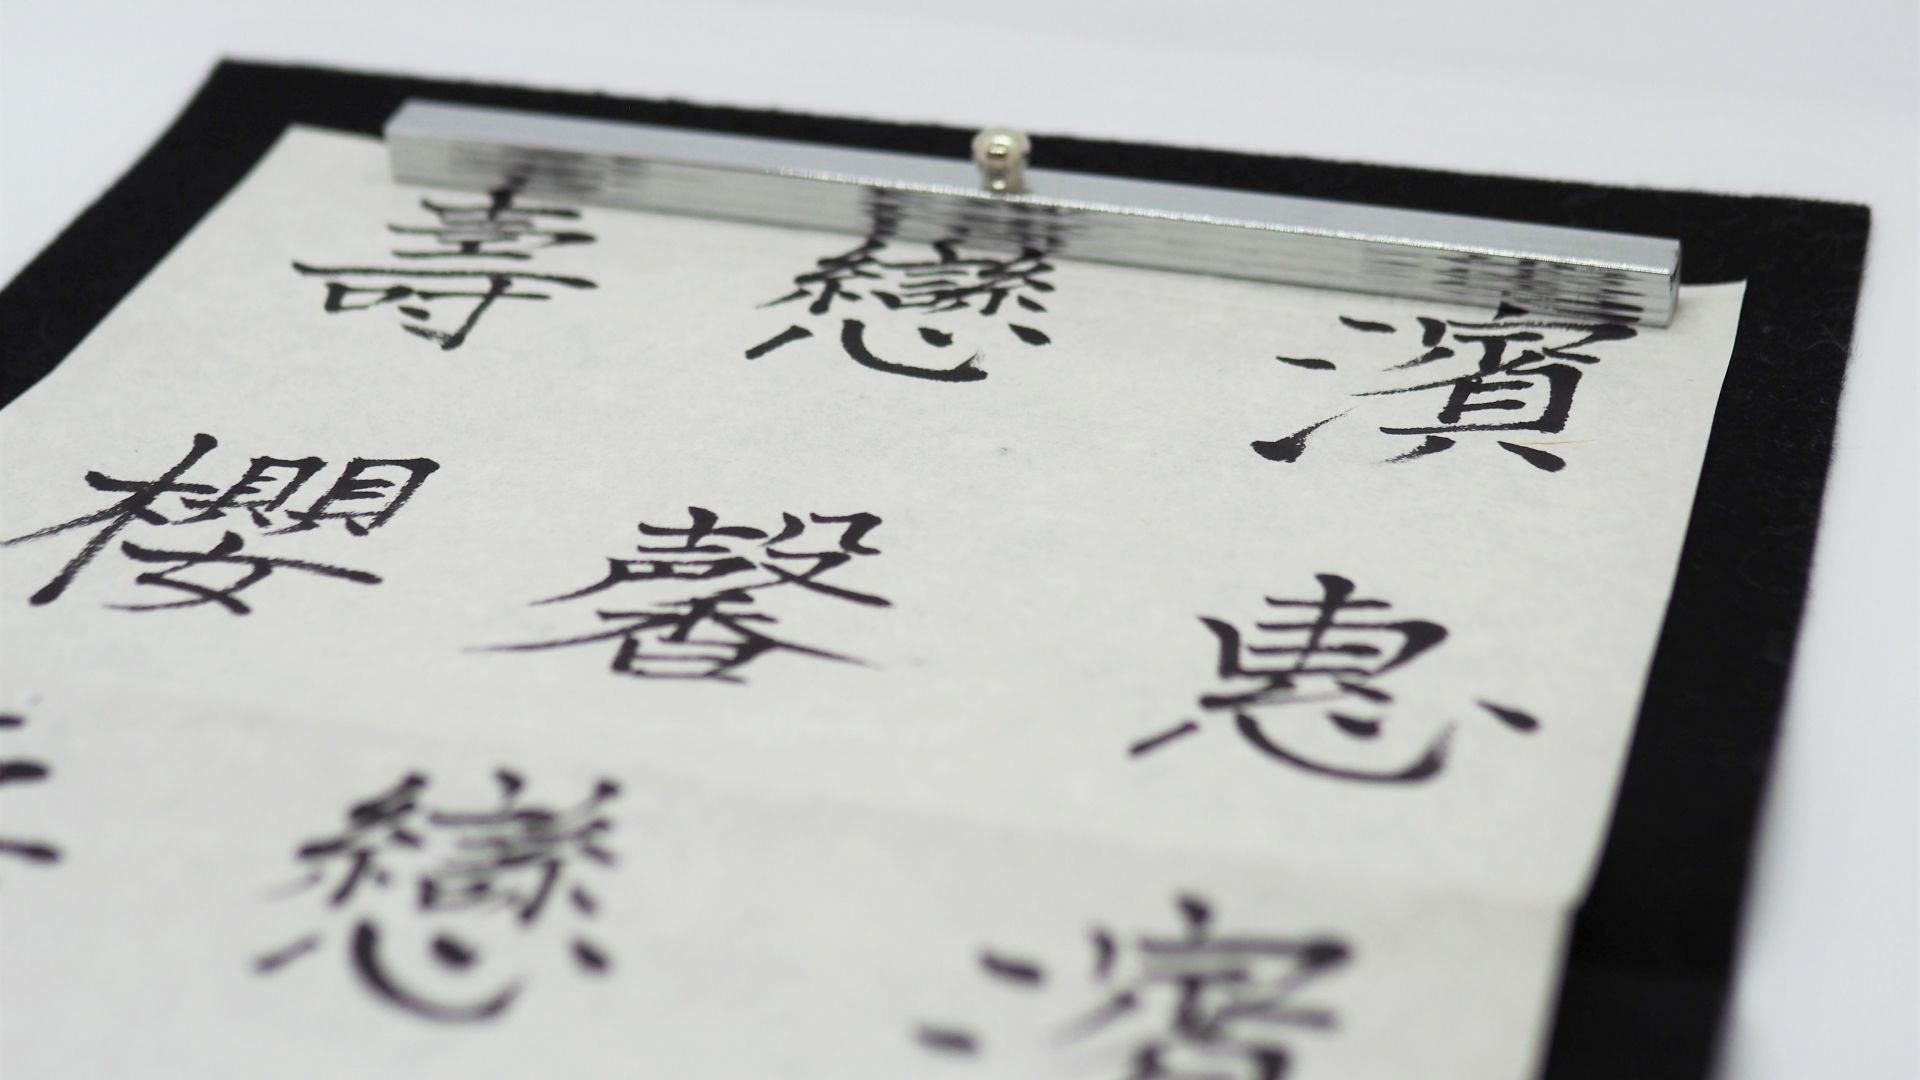 濱惠濱
戀馨戀
壽櫻